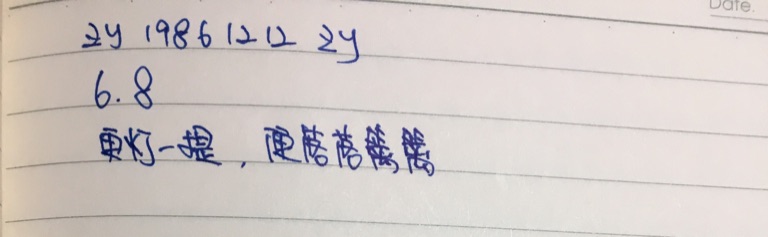 Date.
zy 19861212 zy
6.8
更灯一提,更落落